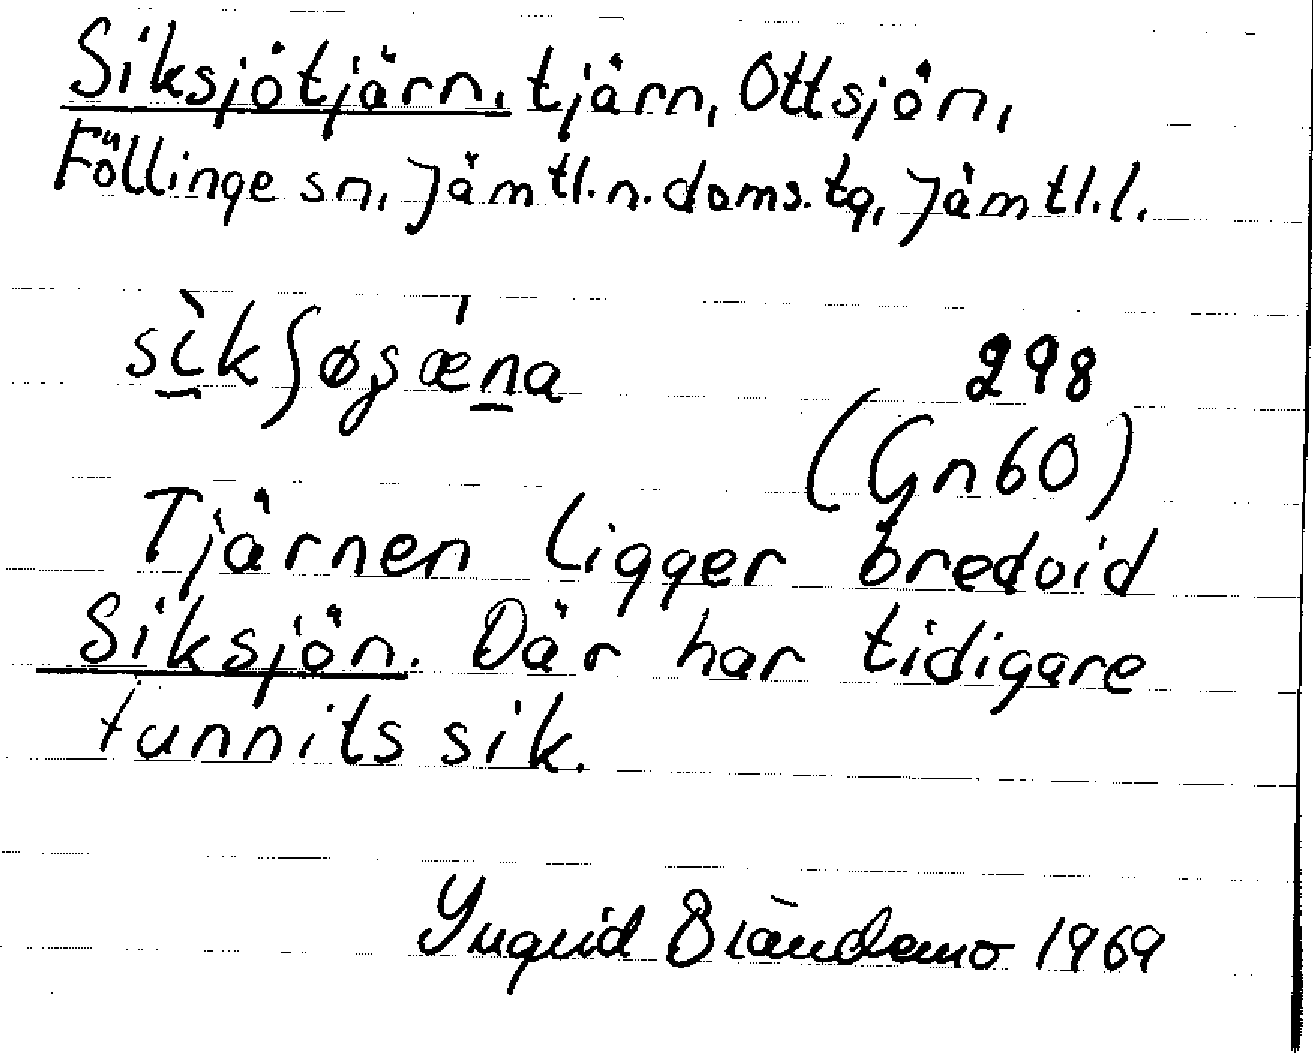 Siksjötjärn, tjärn, Ottsjön,
Föllinge sn, Jämtl. n. doms. tg, Jämtl. l.
298
(Gn60)
Tjärnen ligger bredvid
Siksjön. Där har tidigare
funnits sik.
Ingrid Brändemo 1969